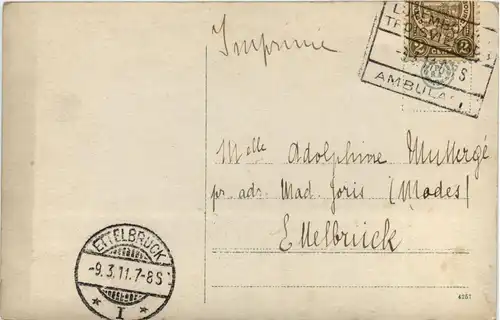 Imprimé
TROISVIE
AMBULA
2
Melle Adolphine
pr. adr. Mad. Joris (Modes)
Ettelbrück
ETTELBRÜCK
-9.3.11.7-8S
* I *
4267